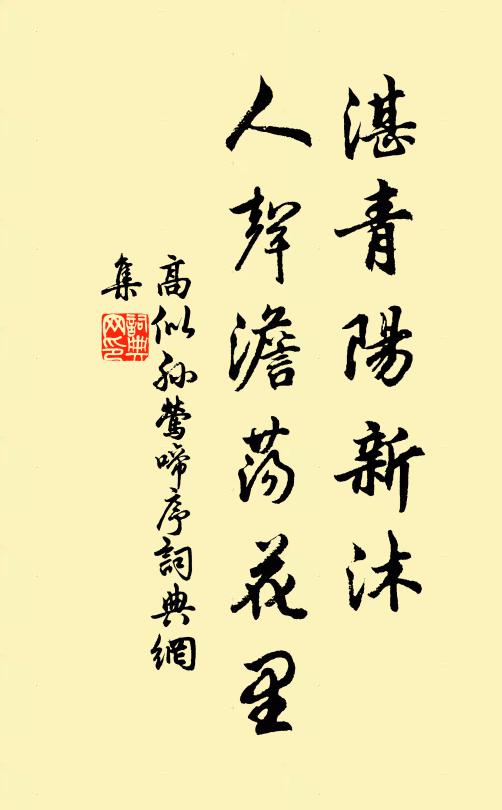 湛青陽新沐
人聲澹蕩花里
高似孙鶯啼序詞典網
集
詞典網印